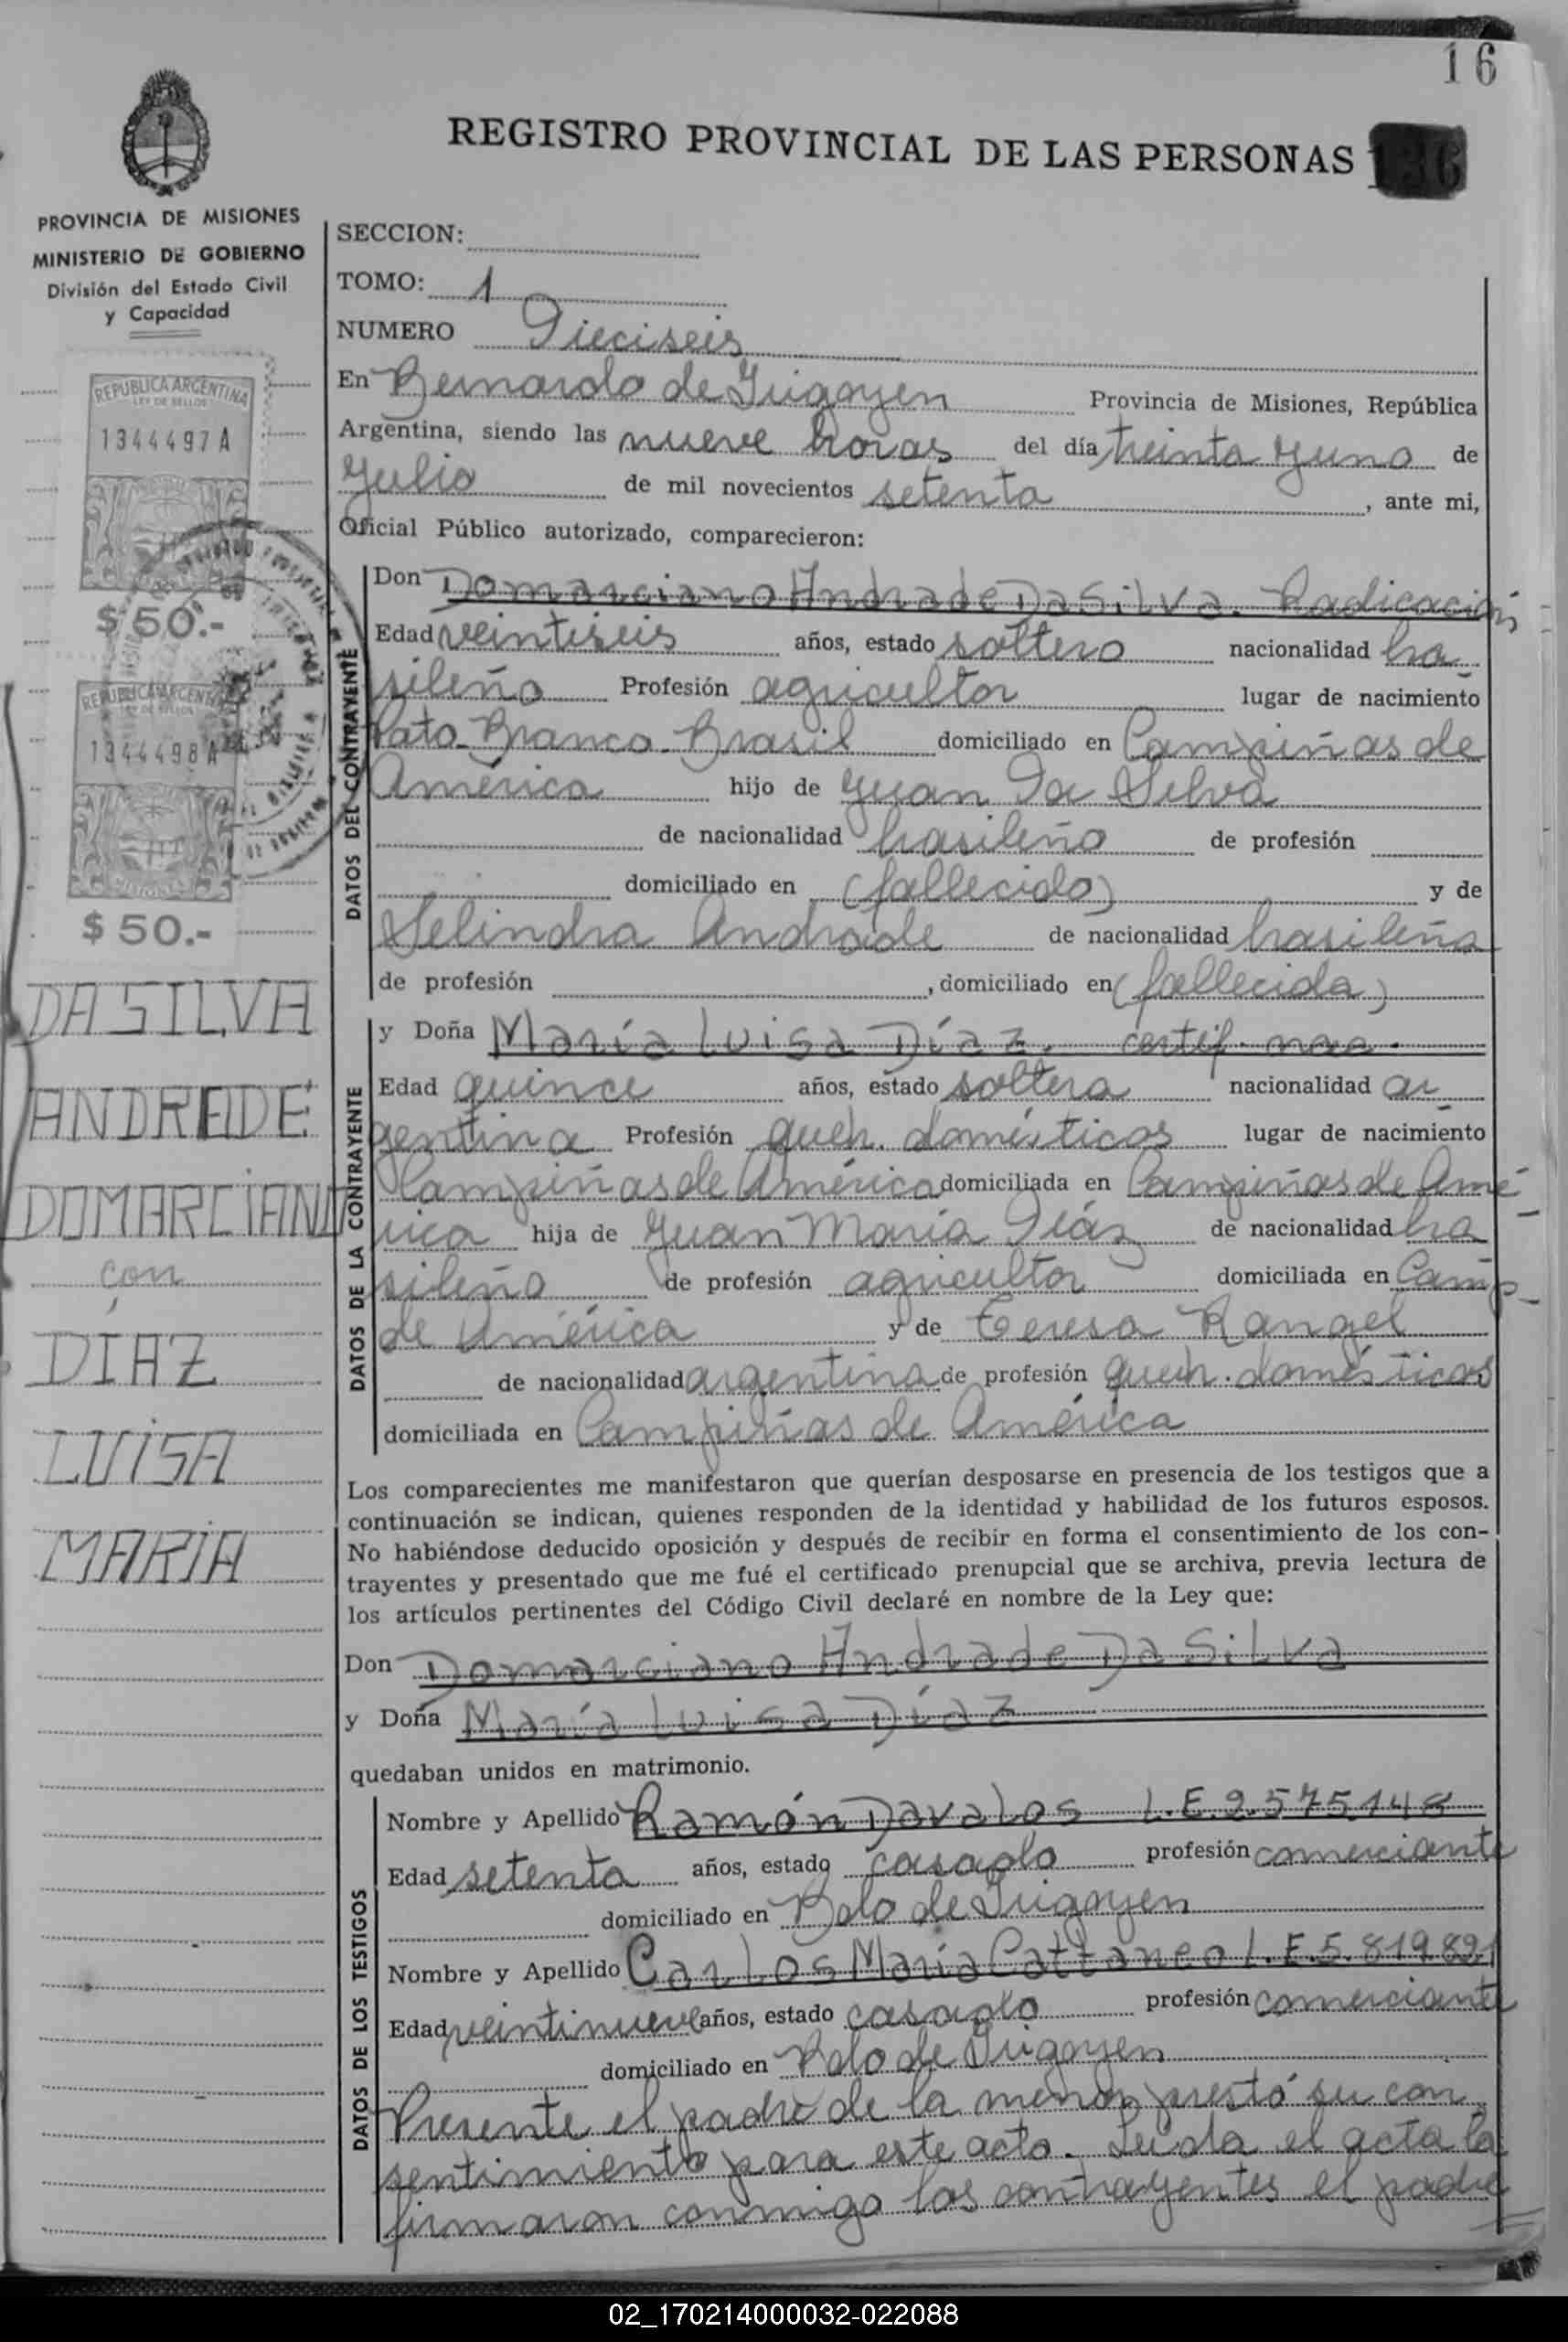 16
REGISTRO PROVINCIAL DE LAS PERSONAS 136
PROVINCIA DE MISIONES
MINISTERIO DE GOBIERNO
División del Estado Civil
y Capacidad
REPUBLICA ARGENTINA
LEY DE SELLOS
1344497A
$ 50.-
REPUBLICA ARGENTINA
LEY DE SELLOS
1344498A
MISIONES
$ 50.-
DA SILVA
ANDRADE
DOMARCIANO
con
DÍAZ
LUISA
MARIA
SECCION:
TOMO: 1
NUMERO Dieciseis
En Bernardo de Irigoyen Provincia de Misiones, República
Argentina, siendo las nueve horas del día treinta y uno de
Julio de mil novecientos setenta, ante mi,
Oficial Público autorizado, comparecieron:
DATOS DEL CONTRAYENTE
Don Domarciano Andrade Da Silva. Radicación
Edad veintiseis años, estado soltero nacionalidad bra
sileño Profesión agricultor lugar de nacimiento
Pato Branco Brasil domiciliado en Campiñas de
América hijo de Juan Da Silva
de nacionalidad brasileño de profesión
domiciliado en (fallecido) y de
Selindra Andrade de nacionalidad brasileña
de profesión , domiciliado en (fallecida)
DATOS DE LA CONTRAYENTE
y Doña María Luisa Díaz. certif. nac.
Edad quince años, estado soltera nacionalidad ar
gentina Profesión queh. domésticos lugar de nacimiento
Campiñas de América domiciliada en Campiñas de Amé-
rica hija de Juan María Díaz de nacionalidad bra
sileño de profesión agricultor domiciliada en Camp-
de América y de Teresa Rangel
de nacionalidad argentina de profesión queh. domésticos
domiciliada en Campiñas de América
Los comparecientes me manifestaron que querían desposarse en presencia de los testigos que a
continuación se indican, quienes responden de la identidad y habilidad de los futuros esposos.
No habiéndose deducido oposición y después de recibir en forma el consentimiento de los con-
trayentes y presentado que me fué el certificado prenupcial que se archiva, previa lectura de
los artículos pertinentes del Código Civil declaré en nombre de la Ley que:
Don Domarciano Andrade Da Silva
y Doña María Luisa Díaz
quedaban unidos en matrimonio.
DATOS DE LOS TESTIGOS
Nombre y Apellido Ramón Davalos L.E. 2.575.148
Edad setenta años, estado casado profesión comerciante
domiciliado en Bdo de Irigoyen
Nombre y Apellido Carlos María Cattaneo L.E. 5.819.821
Edad veintinueve años, estado casado profesión comerciante
domiciliado en Bdo de Irigoyen
Presente el padre de la menor prestó su con
sentimiento para este acto. Leída el acta la
firmaron conmigo los contrayentes el padre
02_170214000032-022088